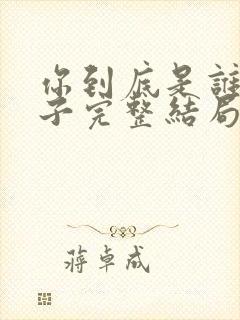 你到底是誰
子完整結局
蔣卓成